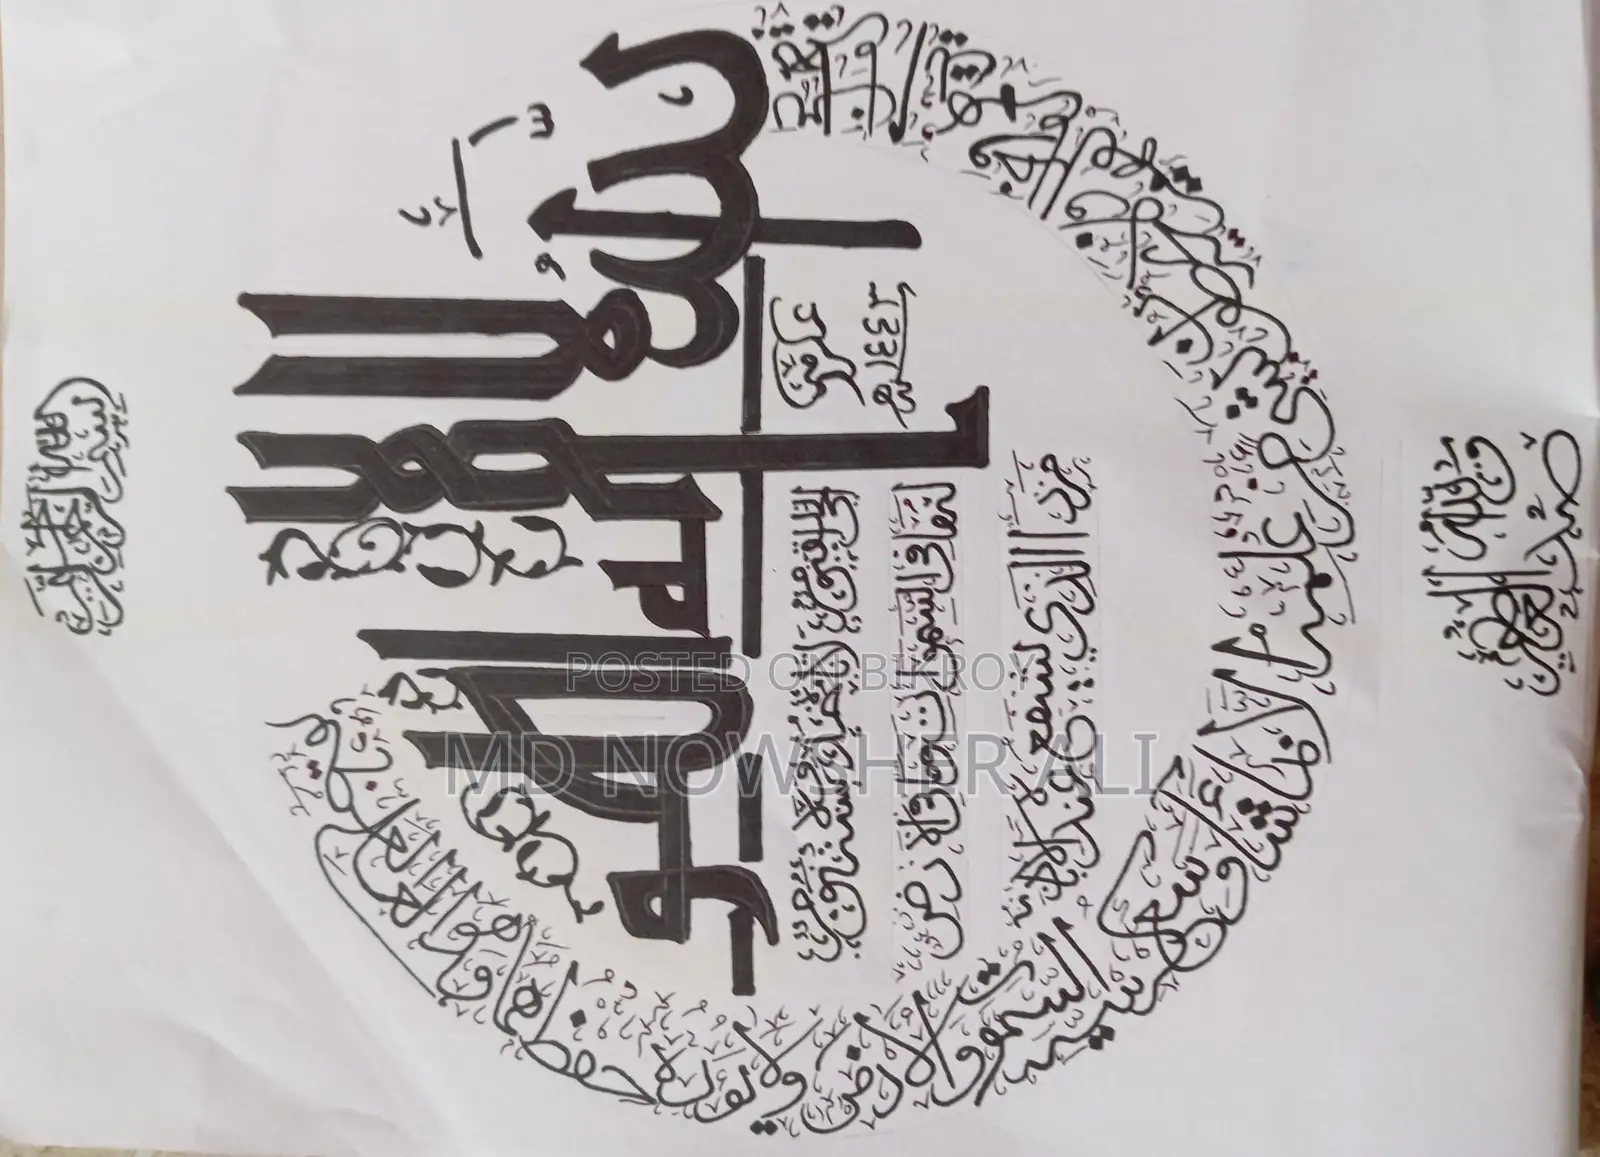 بسم الله الرحمن الرحيم
الله لا اله الا هو
الحي القيوم لا تأخذه سنة ولا نوم
له ما في السموات وما في الارض
من ذا الذي يشفع عنده الا
باذنه يعلم ما بين ايديهم وما خلفهم ولا يحيطون بشيء من علمه الا بما شاء وسع كرسيه السموات والارض ولا يؤده حفظهما وهو العلي العظيم
صدق الله العظيم
POSTED ON BIKROY
MD NOWSHER ALI